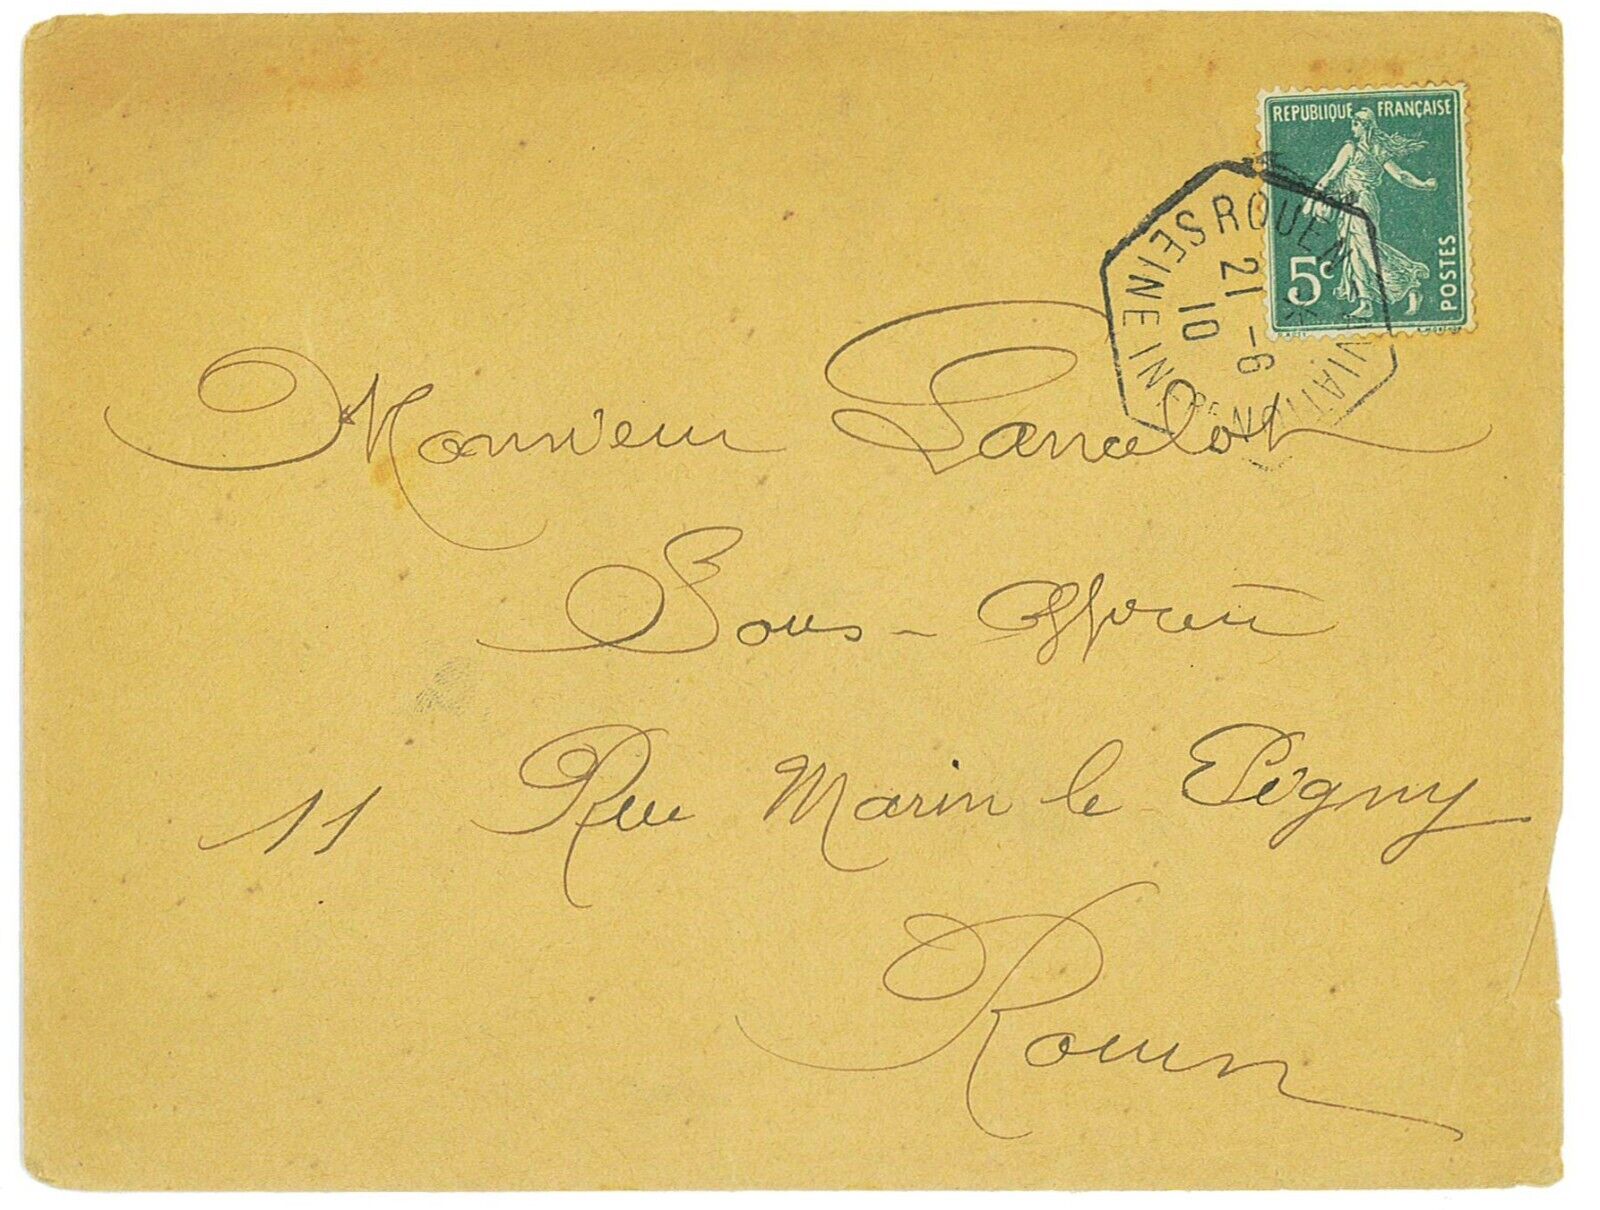 REPUBLIQUE FRANÇAISE
5c
POSTES
ROUEN AVIATION
SEINE INFRE
21 -6
10
Monsieur Lancelot
Sous-Officier
11 Rue Marin le Pigny
Rouen